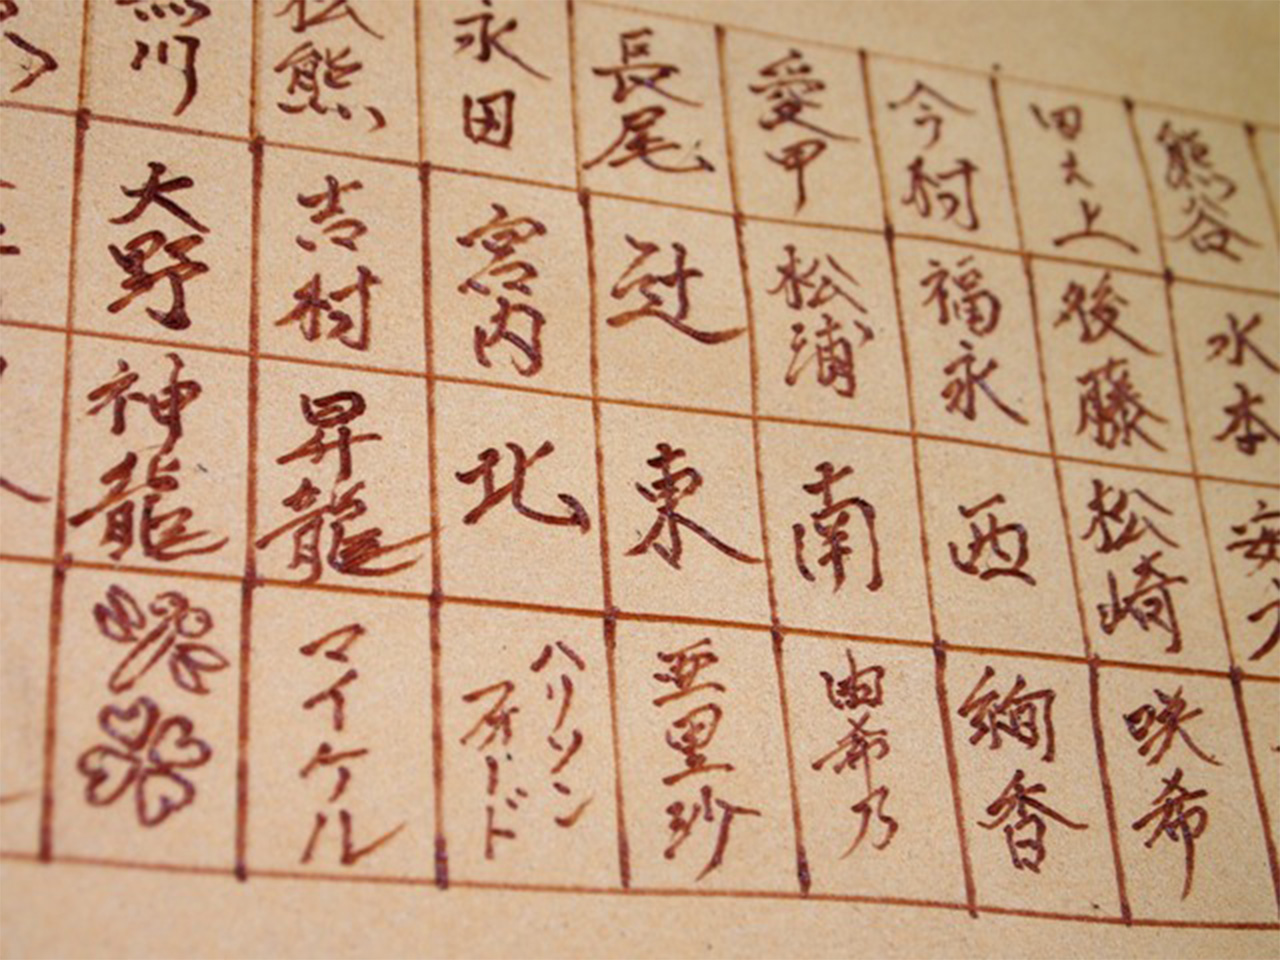 熊谷
田之上
今村
愛甲
長尾
永田
松熊
黒川
水本
後藤
福永
松浦
辻
宮内
吉村
大野
松崎
西
南
東
北
昇龍
神龍
咲希
絢香
由希乃
亜里紗
ハリソン
フォード
マイケル